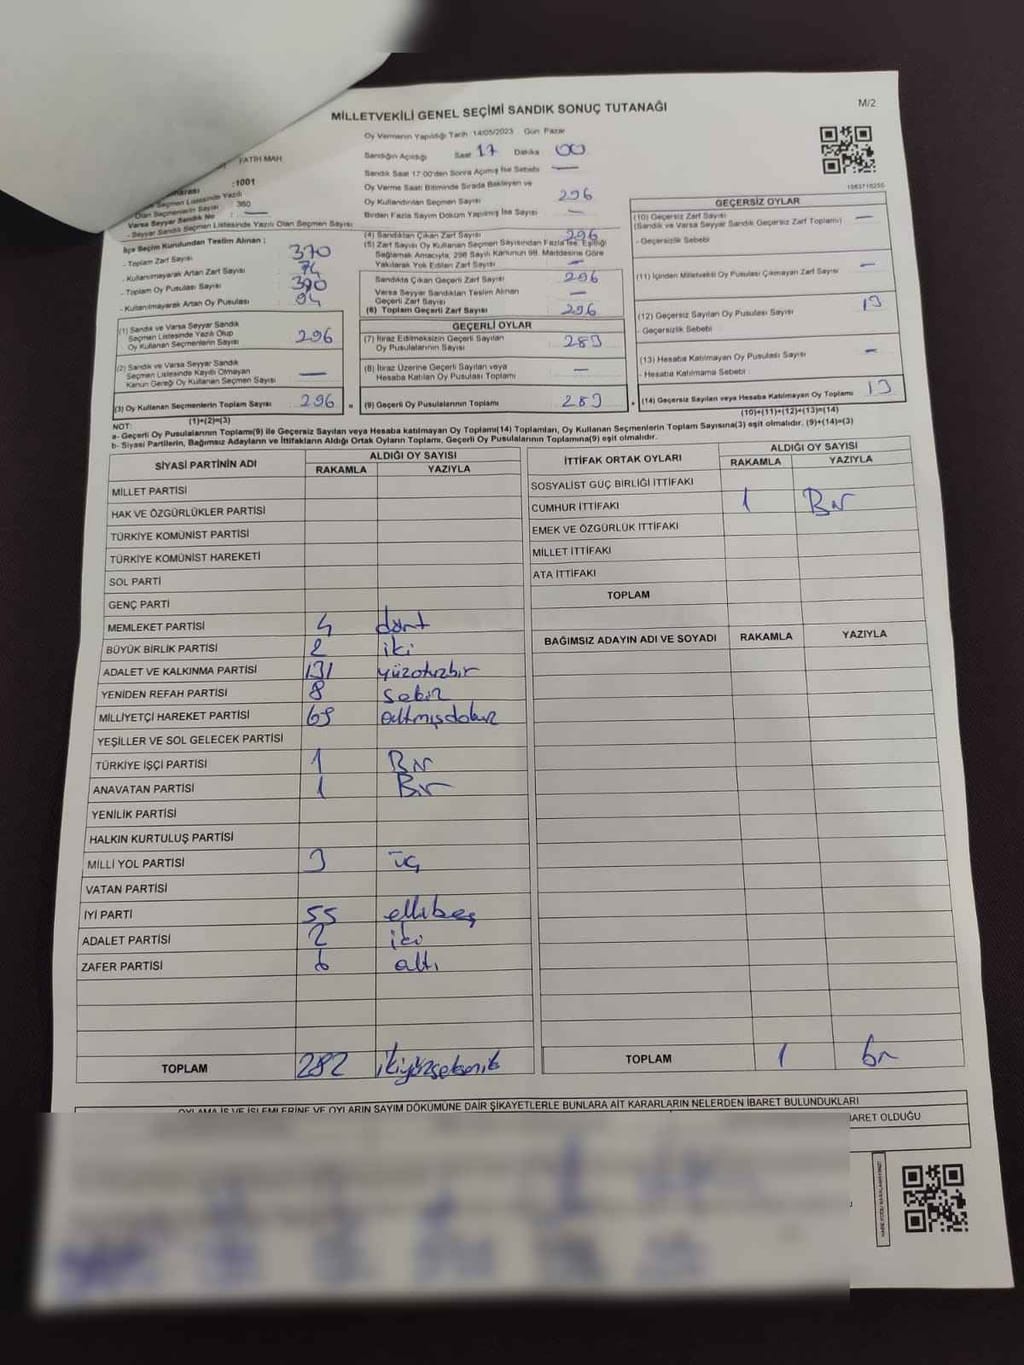 MİLLETVEKİLİ GENEL SEÇİMİ SANDIK SONUÇ TUTANAĞI
M/2
Oy Vermenin Yapıldığı Tarih :14/05/2023 Gün Pazar
FATİH MAH
Sandığın Açıldığı Saat 17 Dakika 00
Sandık Saat 17:00'den Sonra Açılmış İse Sebebi —
:1001
Oy Verme Saati Bitiminde Sırada Bekleyen ve
Oy Kullandırılan Seçmen Sayısı 296
Seçmen Listesinde Yazılı
Olan Seçmenlerin Sayısı : 360
Birden Fazla Sayım Döküm Yapılmış İse Sayısı —
Varsa Seyyar Sandık No : —
- Seyyar Sandık Seçmen Listesinde Yazılı Olan Seçmen Sayısı
İlçe Seçim Kurulundan Teslim Alınan ;
- Toplam Zarf Sayısı 370
- Kullanılmayarak Artan Zarf Sayısı 74
- Toplam Oy Pusulası Sayısı
- Kullanılmayarak Artan Oy Pusulası
(1) Sandık ve Varsa Seyyar Sandık
Seçmen Listesinde Yazılı Olup
Oy Kullanan Seçmenlerin Sayısı 296
(2) Sandık ve Varsa Seyyar Sandık
Seçmen Listesinde Kayıtlı Olmayan
Kanun Gereği Oy Kullanan Seçmen Sayısı —
(3) Oy Kullanan Seçmenlerin Toplam Sayısı 296 =
(1)+(2)=(3)
(4) Sandıktan Çıkan Zarf Sayısı 296
(5) Zarf Sayısı Oy Kullanan Seçmen Sayısından Fazla İse, Eşitliği
Sağlamak Amacıyla, 298 Sayılı Kanunun 98. Maddesine Göre
Yakılarak Yok Edilen Zarf Sayısı —
Sandıkta Çıkan Geçerli Zarf Sayısı 296
Varsa Seyyar Sandıktan Teslim Alınan
Geçerli Zarf Sayısı —
(6) Toplam Geçerli Zarf Sayısı 296
GEÇERLİ OYLAR
(7) İtiraz Edilmeksizin Geçerli Sayılan
Oy Pusulalarının Sayısı 283
(8) İtiraz Üzerine Geçerli Sayılan veya
Hesaba Katılan Oy Pusulası Toplamı —
(9) Geçerli Oy Pusulalarının Toplamı 283 +
GEÇERSİZ OYLAR
(10) Geçersiz Zarf Sayısı —
(Sandık ve Varsa Seyyar Sandık Geçersiz Zarf Toplamı)
- Geçersizlik Sebebi
(11) İçinden Milletvekili Oy Pusulası Çıkmayan Zarf Sayısı —
(12) Geçersiz Sayılan Oy Pusulası Sayısı 13
- Geçersizlik Sebebi
(13) Hesaba Katılmayan Oy Pusulası Sayısı —
- Hesaba Katılmama Sebebi
(14) Geçersiz Sayılan veya Hesaba Katılmayan Oy Toplamı 13
(10)+(11)+(12)+(13)=(14)
NOT:
a- Geçerli Oy Pusulalarının Toplamı(9) ile Geçersiz Sayılan veya Hesaba katılmayan Oy Toplamı(14) Toplamları, Oy Kullanan Seçmenlerin Toplam Sayısına(3) eşit olmalıdır. (9)+(14)=(3)
b- Siyasi Partilerin, Bağımsız Adayların ve İttifakların Aldığı Ortak Oyların Toplamı, Geçerli Oy Pusulalarının Toplamına(9) eşit olmalıdır.
SİYASİ PARTİNİN ADI ALDIĞI OY SAYISI
RAKAMLA YAZIYLA
MİLLET PARTİSİ
HAK VE ÖZGÜRLÜKLER PARTİSİ
TÜRKİYE KOMÜNİST PARTİSİ
TÜRKİYE KOMÜNİST HAREKETİ
SOL PARTİ
GENÇ PARTİ
MEMLEKET PARTİSİ 4 dört
BÜYÜK BİRLİK PARTİSİ 2 iki
ADALET VE KALKINMA PARTİSİ 131 yüzotuzbir
YENİDEN REFAH PARTİSİ 8 sekiz
MİLLİYETÇİ HAREKET PARTİSİ 69 altmışdokuz
YEŞİLLER VE SOL GELECEK PARTİSİ
TÜRKİYE İŞÇİ PARTİSİ 1 Bir
ANAVATAN PARTİSİ 1 Bir
YENİLİK PARTİSİ
HALKIN KURTULUŞ PARTİSİ
MİLLİ YOL PARTİSİ 3 üç
VATAN PARTİSİ
İYİ PARTİ 55 ellibeş
ADALET PARTİSİ 2 iki
ZAFER PARTİSİ 6 altı
TOPLAM 282 ikiyüzseksenik
İTTİFAK ORTAK OYLARI ALDIĞI OY SAYISI
RAKAMLA YAZIYLA
SOSYALİST GÜÇ BİRLİĞİ İTTİFAKI
CUMHUR İTTİFAKI 1 Bir
EMEK VE ÖZGÜRLÜK İTTİFAKI
MİLLET İTTİFAKI
ATA İTTİFAKI
TOPLAM
BAĞIMSIZ ADAYIN ADI VE SOYADI RAKAMLA YAZIYLA
TOPLAM 1 bir
OYLAMA İŞ VE İŞLEMLERİNE VE OYLARIN SAYIM DÖKÜMÜNE DAİR ŞİKAYETLERLE BUNLARA AİT KARARLARIN NELERDEN İBARET BULUNDUKLARI
BARET OLDUĞU